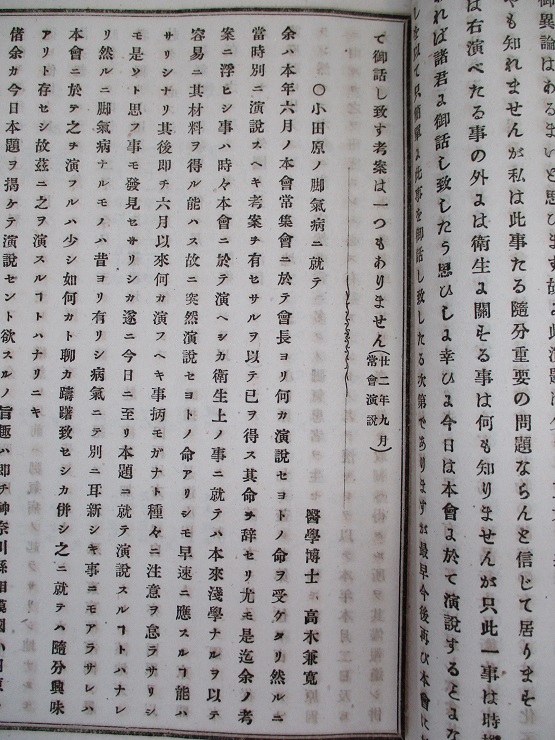 やも知れませんが私は此事たる隨分重要の問題ならんと信じて居りませ
は右演べたる事の外よは衛生よ關そる事は何も知りませんが只此一事は時
れば諸君よ御話し致したう思ひしよ幸ひよ今日は本會よ於て演説するとよな
しを以て只簡單よ此事を御話し致したる次第でありまずが最早今後再び本會に
て御話し致す考案は一つもありません(廿二年九月常會演説)
○小田原ノ脚氣病ニ就テ
醫學博士 高木兼寬
余ハ本年六月ノ本會常集會ニ於テ會長ヨリ何カ演説セヨトノ命ヲ受ケタリ然ルニ
當時別ニ演説スヘキ考案ヲ有セサルヲ以テ已ヲ得ス其命ヲ辞セリ尤モ是迄余ノ考
案ニ浮ヒシ事ハ時々本會ニ於テ演ヘシカ衛生上ノ事ニ就テハ本來淺學ナルヲ以テ
容易ニ其材料ヲ得ル能ハス故ニ突然演説セヨトノ命アリシモ早速ニ應スルヿ能ハ
サリシナリ其後即チ六月以來何カ演フヘキ事柄モガナト種々ニ注意ヲ怠ラサリシ
モ是ソト思フ事モ發見セサリシカ遂ニ今日ニ至リ本題ニ就テ演説スルヿトハナレ
リ然ルニ脚氣病ナルモノハ昔ヨリ有リシ病氣ニテ別ニ耳新シキ事ニモアラサレハ
本會ニ於テ之ヲ演フルハ少シ如何カト聊カ躊躇致セシカ併シ之ニ就テハ隨分興味
アリト存セシ故茲ニ之ヲ演スルヿトハナリニキ
偖余カ今日本題ヲ揭ケテ演説セント欲スルノ旨趣ハ即チ神奈川縣相模國小田原